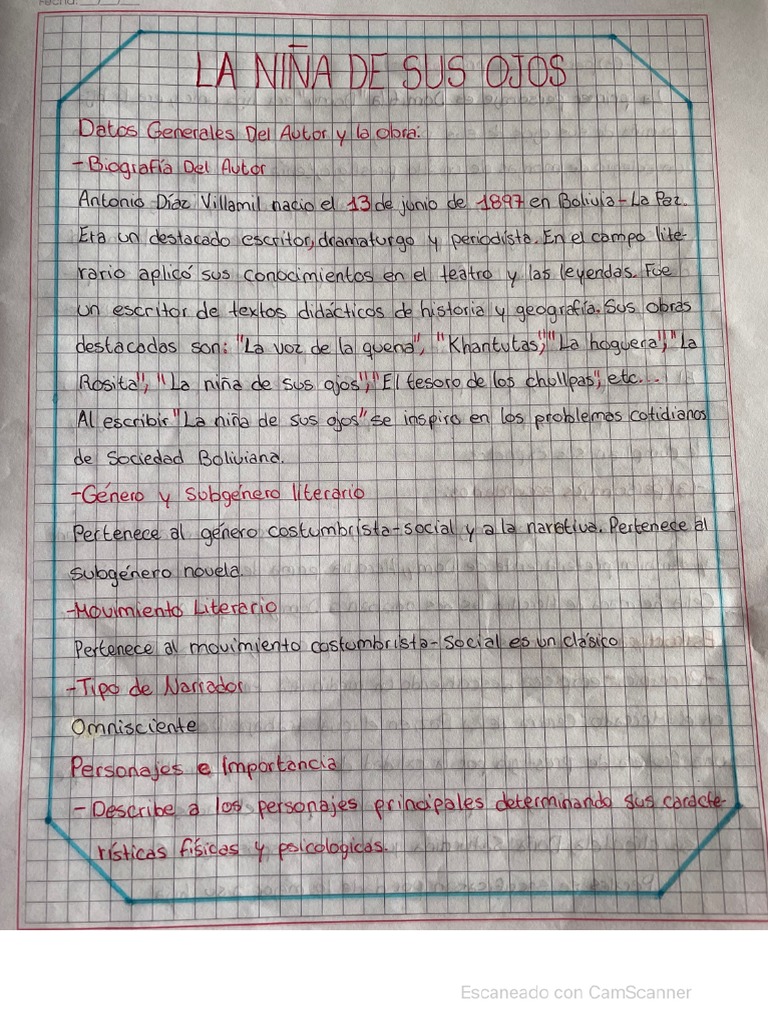 Fecha:
LA NIÑA DE SUS OJOS
Datos Generales Del Autor y la obra:
- Biografía Del Autor
Antonio Díaz Villamil nacio el 13 de junio de 1897 en Bolivia - La Paz.
Era un destacado escritor, dramaturgo y periodista. En el campo lite-
rario aplicó sus conocimientos en el teatro y las leyendas. Fue
un escritor de textos didácticos de historia y geografía. Sus obras
destacadas son: "La voz de la quena", "Khantutas", "La hoguera", "La
Rosita", "La niña de sus ojos", "El tesoro de los chullpas", etc...
Al escribir "La niña de sus ojos" se inspiro en los problemas cotidianos
de Sociedad Boliviana.
- Género y Subgénero literario
Pertenece al género costumbrista-social y a la narativa. Pertenece al
subgénero novela.
- Movimiento Literario
Pertenece al movimiento costumbrista-Social es un clásico
- Tipo de Narrador
Omnisciente
Personajes e Importancia
- Describe a los personajes principales determinando sus caracte-
rísticas físicas y psicologicas.
Escaneado con CamScanner